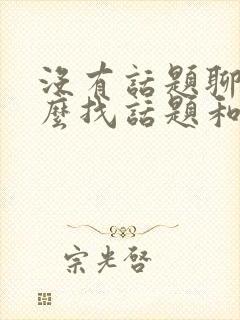 沒有話題聊
麼找話題和
宗光啓